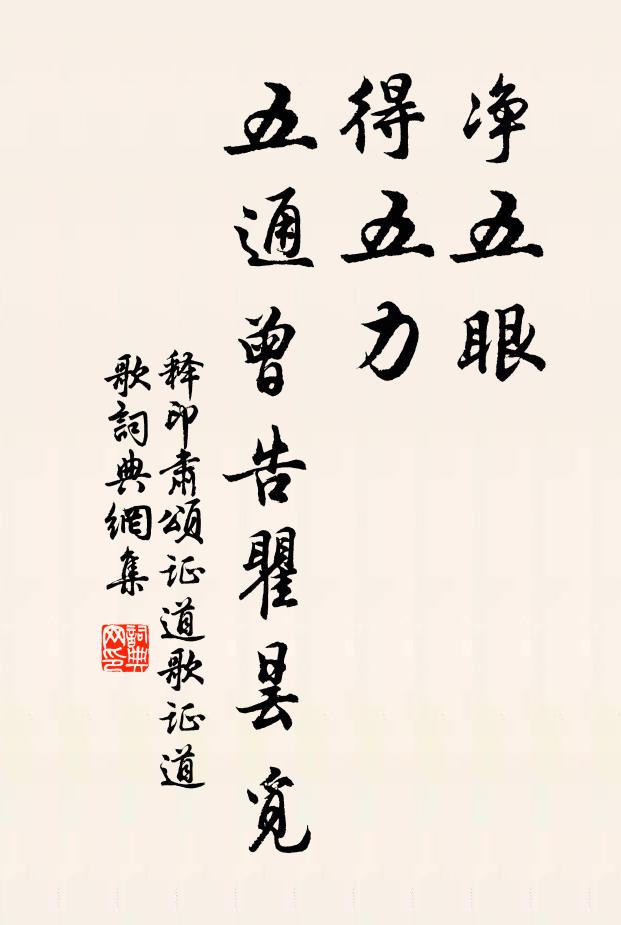 净五眼
得五力
五通曾告瞿昙觅
释印肃颂证道歌证道
歌词典網集
詞典
网印